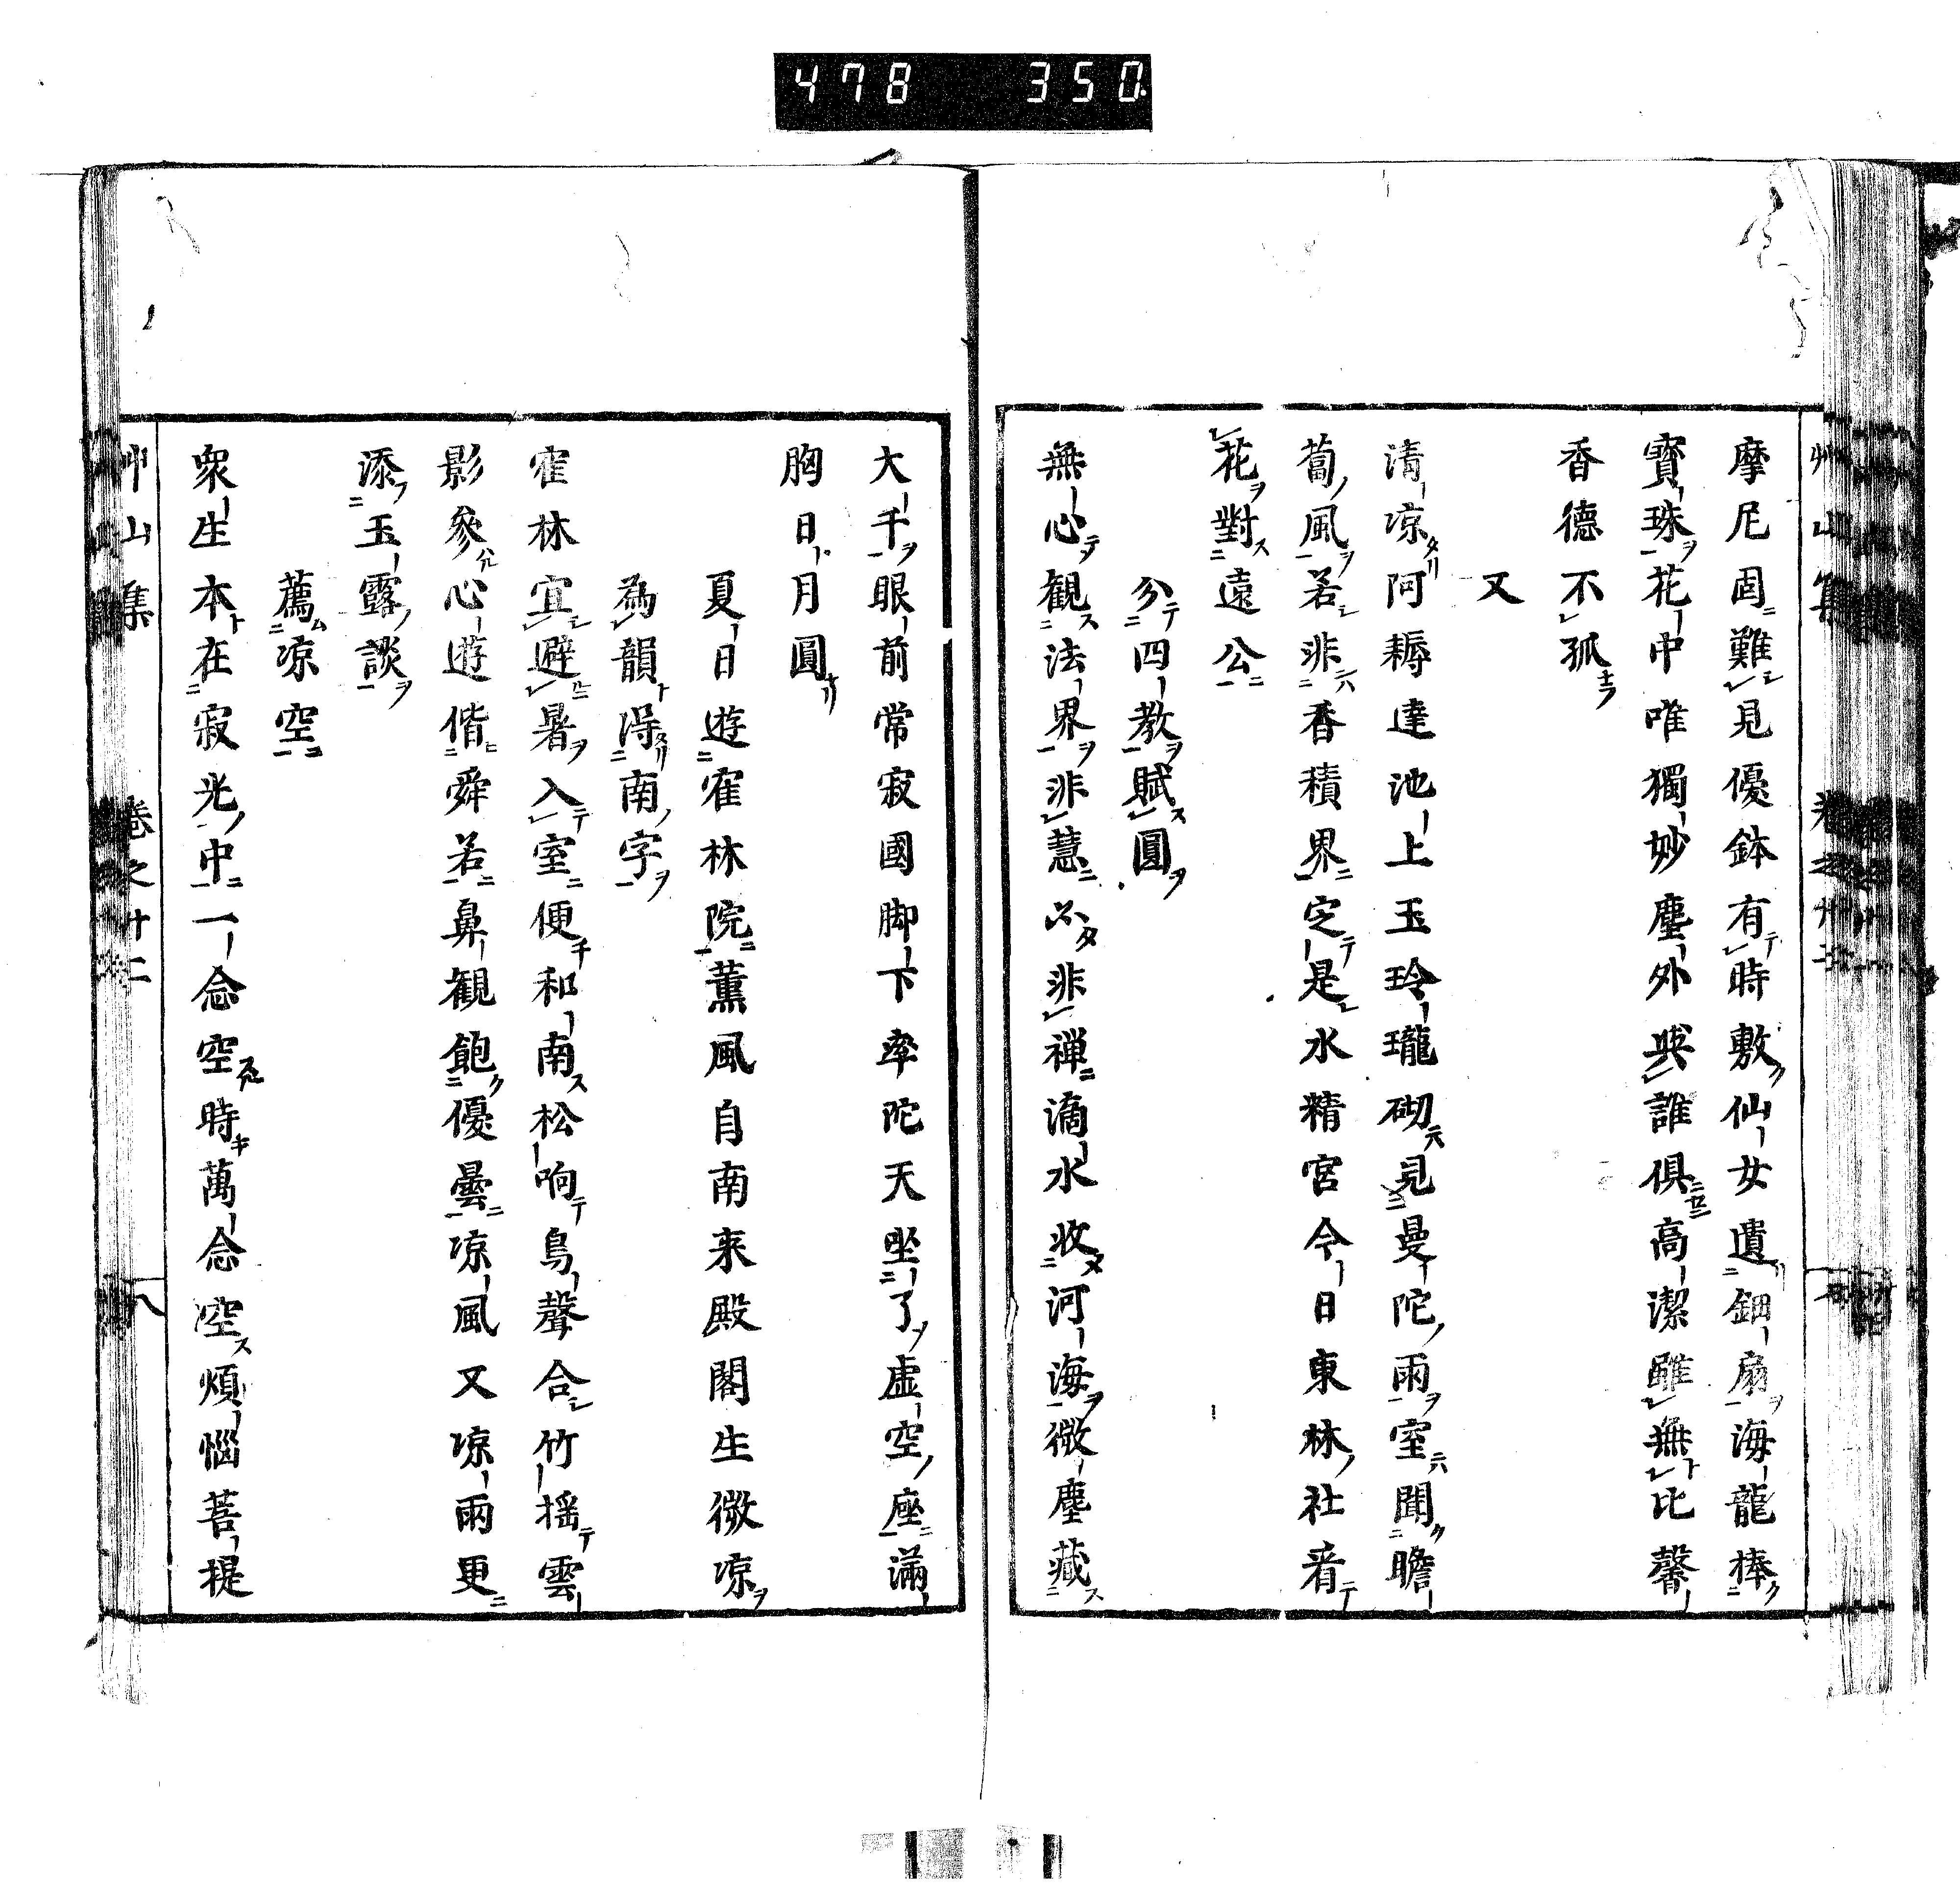 478 350
艸山集
摩尼固難見優鉢有時敷仙女遺鈿扇海龍捧
寶珠花中唯獨妙塵外與誰俱高潔雖無比馨
香德不孤
又
清凉阿耨達池上玉玲瓏砌見曼陀雨室聞瞻
蔔風若非香積界定是水精宮今日東林社看
花對遠公
分四教賦圓
無心観法界非慧不非禅滴水收河海微塵藏
大千眼前常寂國脚下率陀天坐了虚空座滿
胸日月圓
夏日遊寉林院薫風自南来殿閣生微凉
為韻得南字
寉林宜避暑入室便和南松响鳥聲合竹摇雲
影參心遊偕舜若鼻観飽優曇凉風又凉雨更
添玉露談
薦凉空
衆生本在寂光中一念空時萬念空煩惱菩提
艸山集 卷之廿二 八